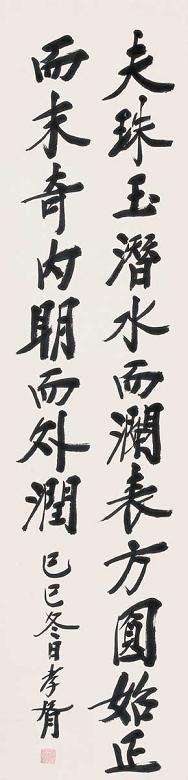 夫珠玉潛水而瀾表方圓始正
而末奇內明而外潤
己巳冬日孝胥